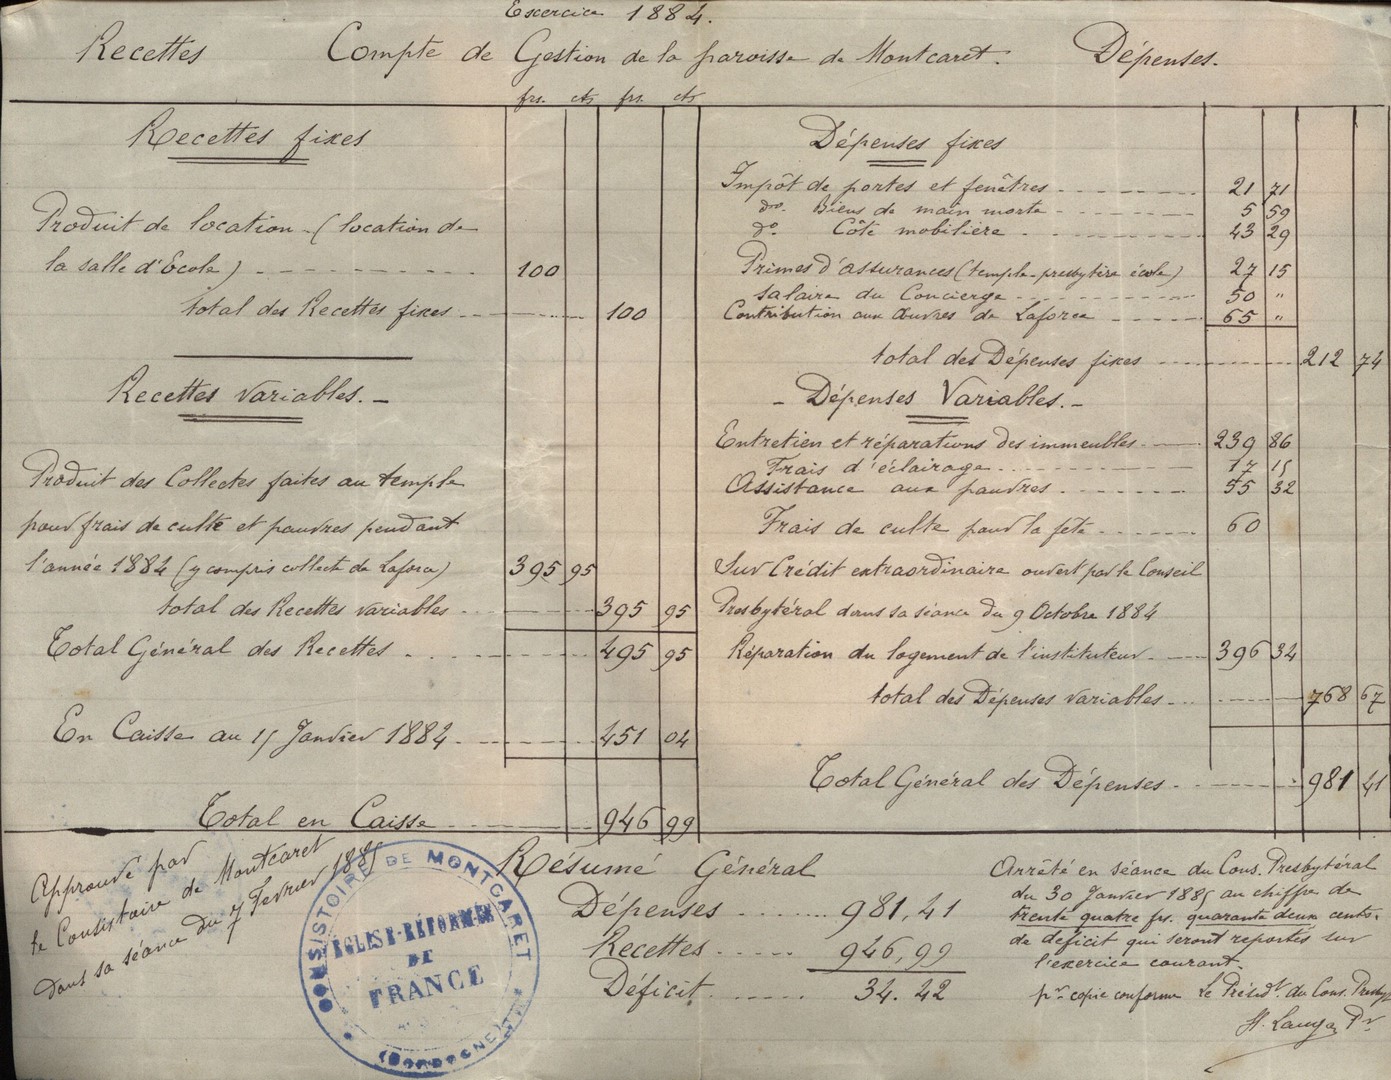 Exercice 1884.
Recettes Compte de Gestion de la paroisse de Montcaret. Dépenses.
frs. cts frs. cts
Recettes fixes
Produit de location (location de
la salle d'Ecole) 100
total des Recettes fixes 100
Recettes variables.
Produit des Collectes faites au temple
pour frais de culte et pauvres pendant
l'année 1884 (y compris collecte de Laforce) 395 95
total des Recettes variables 395 95
Total Général des Recettes 495 95
En Caisse au 15 Janvier 1884 451 04
Total en Caisse 946 99
Dépenses fixes
Impôt de portes et fenêtres 21 71
do. Biens de main morte 5 59
do. Côte mobilière 43 29
Primes d'assurances (temple-presbytère école) 27 15
Salaire du Concierge 50 "
Contribution aux Œuvres de Laforce 65 "
total des Dépenses fixes 212 74
- Dépenses Variables. -
Entretien et réparations des immeubles 239 86
Frais d'éclairage 17 15
Assistance aux pauvres 55 32
Frais de culte pour la fête 60
Sur Crédit extraordinaire ouvert par le Conseil
Presbytéral dans sa séance du 9 Octobre 1884
Réparation du logement de l'instituteur 396 34
total des Dépenses variables 768 67
Total Général des Dépenses 981 41
Approuvé par
le Consistoire de Montcaret
dans sa séance du 7 Fevrier 1885
CONSISTOIRE DE MONTCARET
ÉGLISE-RÉFORMÉE
DE
FRANCE
(DORDOGNE)
Résumé Général
Dépenses 981,41
Recettes 946,99
Déficit 34.42
Arrêté en séance du Cons. Presbytéral
du 30 Janvier 1885 au chiffre de
trente quatre frs. quarante deux cents.
de déficit qui seront reportés sur
l'exercice courant.
pr. copie conforme Le Présidt. du Cons. Presby